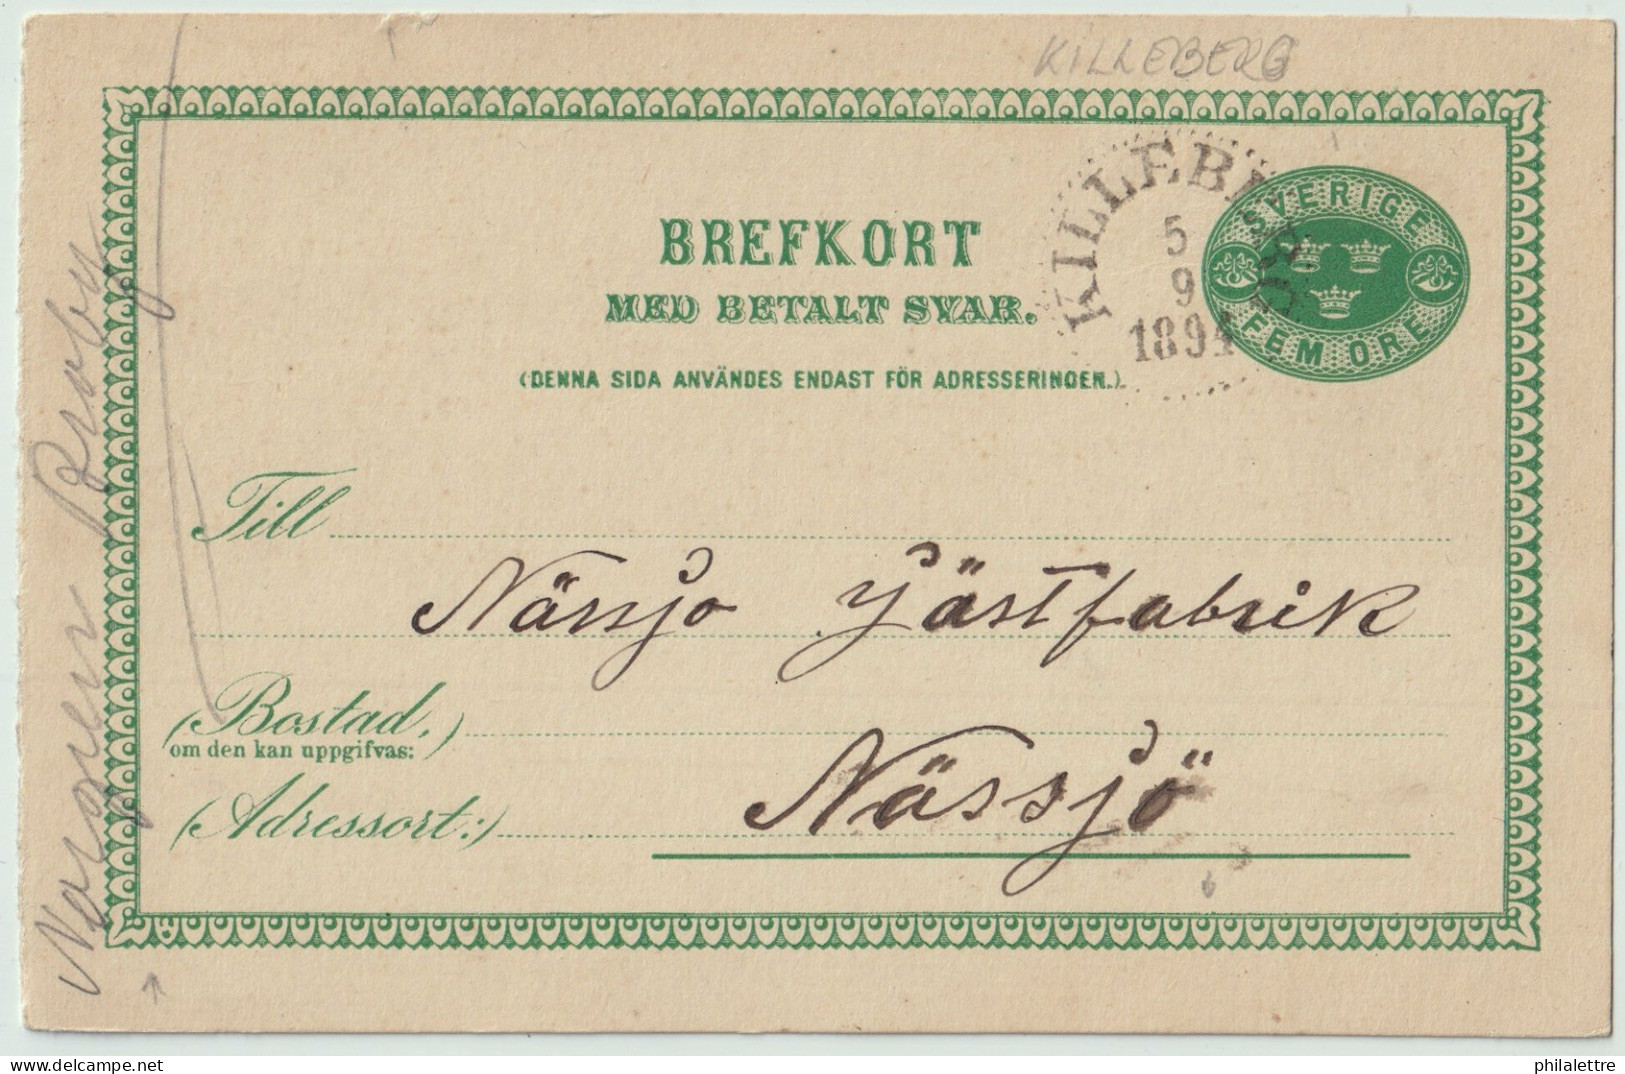 KILLEBERG
KILLEBERG
5
9
1894
SVERIGE
FEM ÖRE
BREFKORT
MED BETALT SVAR.
(DENNA SIDA ANVÄNDES ENDAST FÖR ADRESSERINGEN.)
Till
Nässjo Jästfabrik
(Bostad,)
om den kan uppgifvas:
Nässjö
(Adressort:)
philalettre